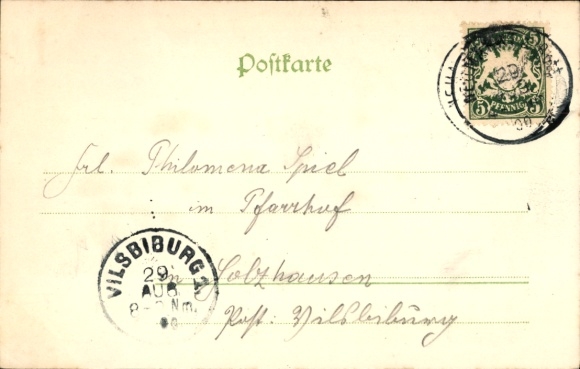 Postkarte
5 5
5 PFENNIG 5
29
00
Frl. Philomena Spiel
im Pfarrhof
in Holzhausen
Post: Vilsbiburg
VILSBIBURG
29
AUG
Nm.